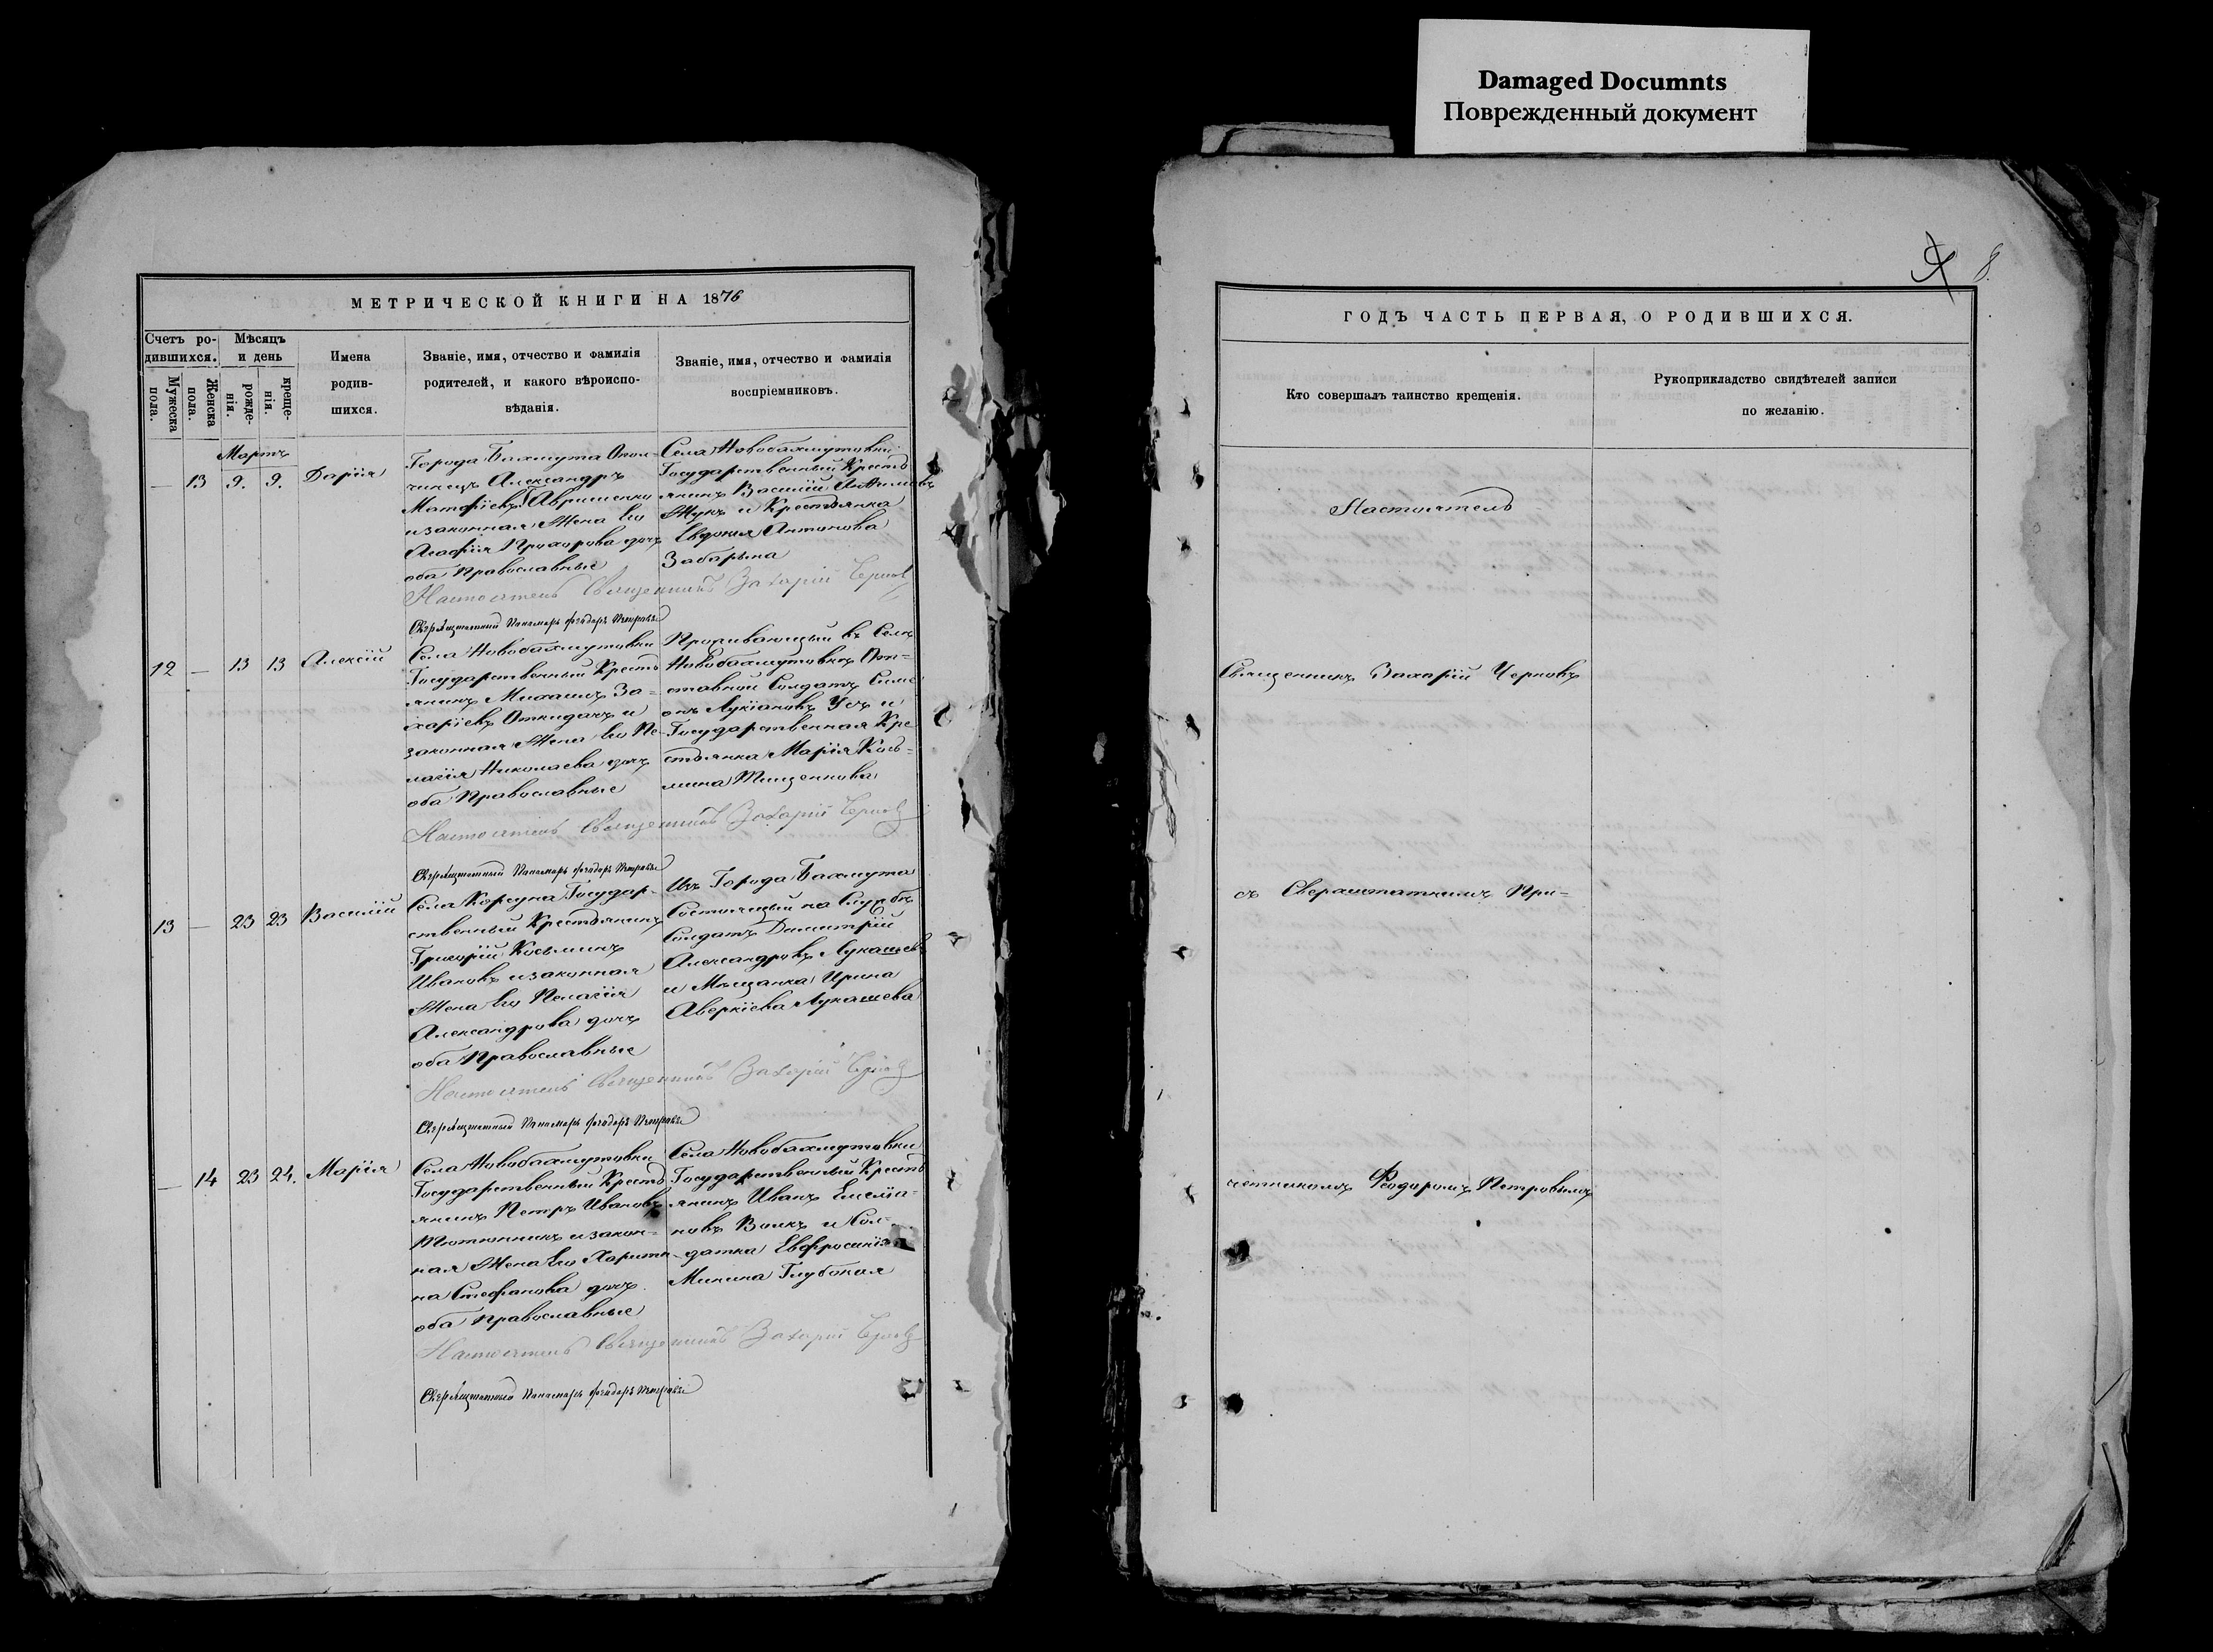 Damaged Documnts
Поврежденный документ
МЕТРИЧЕСКОЙ КНИГИ НА 1876
Счетъ ро-
дившихся.
Мужеска
пола.
Женска
пола.
Мѣсяцъ
и день
рожде-
нія.
креще-
нія.
Имена
родив-
шихся.
Званіе, имя, отчество и фамилія
родителей, и какого вѣроиспо-
вѣданія.
Званіе, имя, отчество и фамилія
воспріемниковъ.
Мартъ
— 13 9. 9. Дарія
Города Бахмута
Александръ
Матфіевъ Гавришенко
и законная жена его
Агафія Прохорова дочь
оба Православные
Села Новобахмутовки
Государственный Кресть
янинъ Василій
Жукъ и Крестьянка
Евдокія Антонова
Забарына
Настоятель Священникъ Захарій Черновъ
Сверхштатный Пономарь Феодоръ Петровъ
12 — 13 13 Алексій
Села Новобахмутовки
Государственный Кресть
янинъ Михаилъ За-
харіевъ Откидачъ и
законная жена его Пе-
лагія Николаева дочь
оба Православные
Проживающый въ Селѣ
Новобахмутовкѣ От-
ставной Солдатъ Симе
онъ Лукіановъ Усъ и
Государственная Кре
стьянка Марія Кось-
мина Тищенкова
Настоятель Священникъ Захарій Черновъ
Сверхштатный Пономарь Феодоръ Петровъ
13 — 23 23 Василій
Села Корсуна Государ-
ственный Крестьянинъ
Григорій Косьминъ
Ивановъ и законная
жена его Пелагія
Александрова дочь
оба Православные
Изъ Города Бахмута
Состоящый на Службѣ
Солдатъ Димитрій
Александровъ Лукашевъ
и Мѣщанка Ирина
Аверкіева Лукашева
Настоятель Священникъ Захарій Черновъ
Сверхштатный Пономарь Феодоръ Петровъ
— 14 23 24. Марія
Села Новобахмутовки
Государственный Кресть
янинъ Петръ Ивановъ
Тютюнникъ и закон-
ная жена его Харити-
на Стефанова дочь
оба Православные
Села Новобахмутовки
Государственный Кресть
янинъ Иванъ Емеліа-
новъ Волкъ и Сол-
датка Евфросинія
Минина Глубокая
Настоятель Священникъ Захарій Черновъ
Сверхштатный Пономарь Феодоръ Петровъ
8.
ГОДЪ ЧАСТЬ ПЕРВАЯ, О РОДИВШИХСЯ.
Кто совершалъ таинство крещенія.
Рукоприкладство свидѣтелей записи
по желанію.
Настоятель
Священникъ Захарій Черновъ
съ Сверхштатнымъ При-
четникомъ Феодоромъ Петровымъ